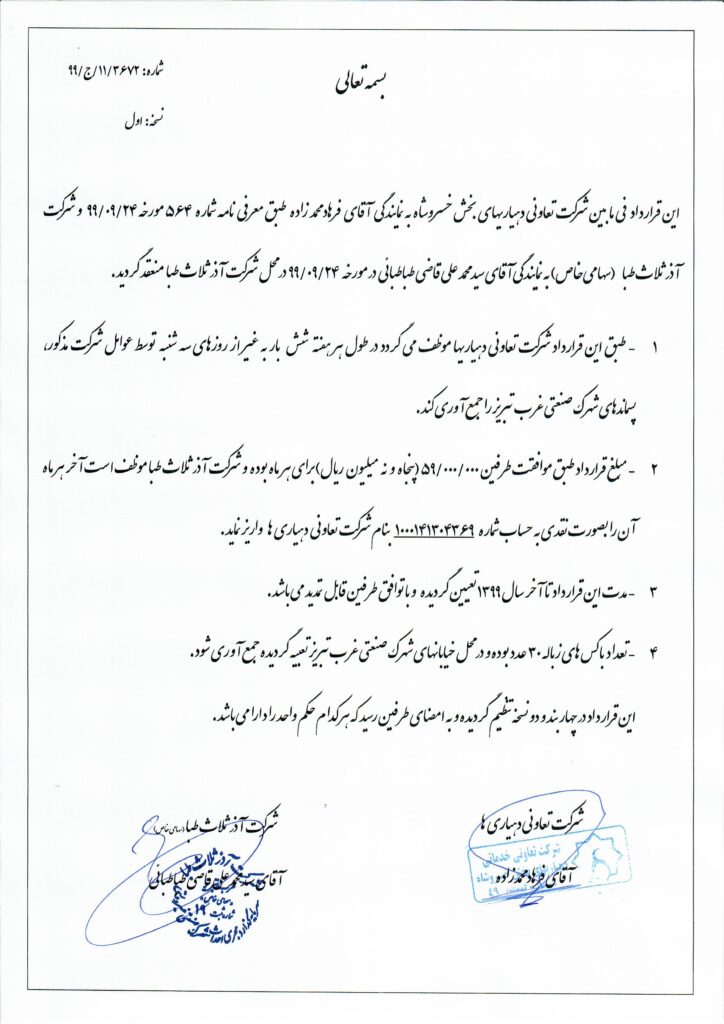 بسمه تعالی
شماره: ۱۱/۳۶۷۲/ج/۹۹
نسخه: اول
این قرارداد فی مابین شرکت تعاونی دهیاریهای بخش خسروشاه به نمایندگی آقای فرهاد محمدزاده طبق معرفی نامه شماره ۵۶۴ مورخه ۹۹/۰۹/۲۴ و شرکت
آذر ثلاث طبا (سهامی خاص) به نمایندگی آقای سید محمد علی قاضی طباطبائی در مورخه ۹۹/۰۹/۲۴ در محل شرکت آذر ثلاث طبا منعقد گردید.
۱ - طبق این قرارداد شرکت تعاونی دهیاریها موظف می گردد در طول هر هفته شش بار به غیر از روزهای سه شنبه توسط عوامل شرکت مذکور،
پسماندهای شهرک صنعتی غرب تبریز را جمع آوری کند.
۲ - مبلغ قرارداد طبق موافقت طرفین ۵۹/۰۰۰/۰۰۰ (پنجاه و نه میلیون ریال) برای هر ماه بوده و شرکت آذر ثلاث طبا موظف است آخر هر ماه
آن را بصورت نقدی به حساب شماره ۱۰۰۰۱۴۱۳۰۴۳۶۹ بنام شرکت تعاونی دهیاری ها واریز نماید.
۳ - مدت این قرارداد تا آخر سال ۱۳۹۹ تعیین گردیده و با توافق طرفین قابل تمدید می باشد.
۴ - تعداد باکس های زباله ۳۰ عدد بوده و در محل خیابانهای شهرک صنعتی غرب تبریز تعبیه گردیده جمع آوری شود.
این قرارداد در چهار بند و دو نسخه تنظیم گردیده و به امضای طرفین رسید که هر کدام حکم واحد را دارا می باشد.
شرکت تعاونی دهیاری ها
شرکت تعاونی خدماتی
آقای فرهاد محمدزاده
شرکت آذر ثلاث طبا (سهامی خاص)
آقای سید محمد علی قاضی طباطبائی
آذر ثلاث
سهامی خاص
شماره ثبت